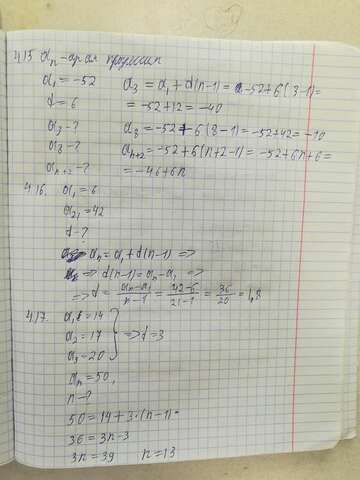 4.15 aₙ - ар-ая прогрессия
a₁ = -52 a₃ = a₁ + d(n-1) = -52+6(3-1)=
d = 6 = -52+12 = -40
a₃ - ? a₈ = -52+6(8-1) = -52+42 = -10
a₈ - ? aₙ₊₂ = -52+6(n+2-1) = -52+6n+6=
aₙ₊₂ - ? = -46+6n
4.16. a₁ = 6
a₂₁ = 42
d - ?
aₙ = a₁ + d(n-1) =>
=> d(n-1) = aₙ - a₁ =>
=> d = (aₙ-a₁)/(n-1) = (42-6)/(21-1) = 36/20 = 1,8
4.17. a₁ = 14
a₂ = 17 } => d = 3
a₃ = 20
aₙ = 50,
n - ?
50 = 14 + 3·(n-1)
36 = 3n-3
3n = 39 n = 13